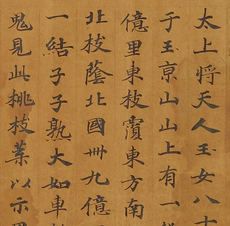 太上將天人玉女八十
于玉京山山上有一
億里東枝東方南
北枝蔭北國卅九億
一結子子熟大如車
鬼見此桃枝葉以示